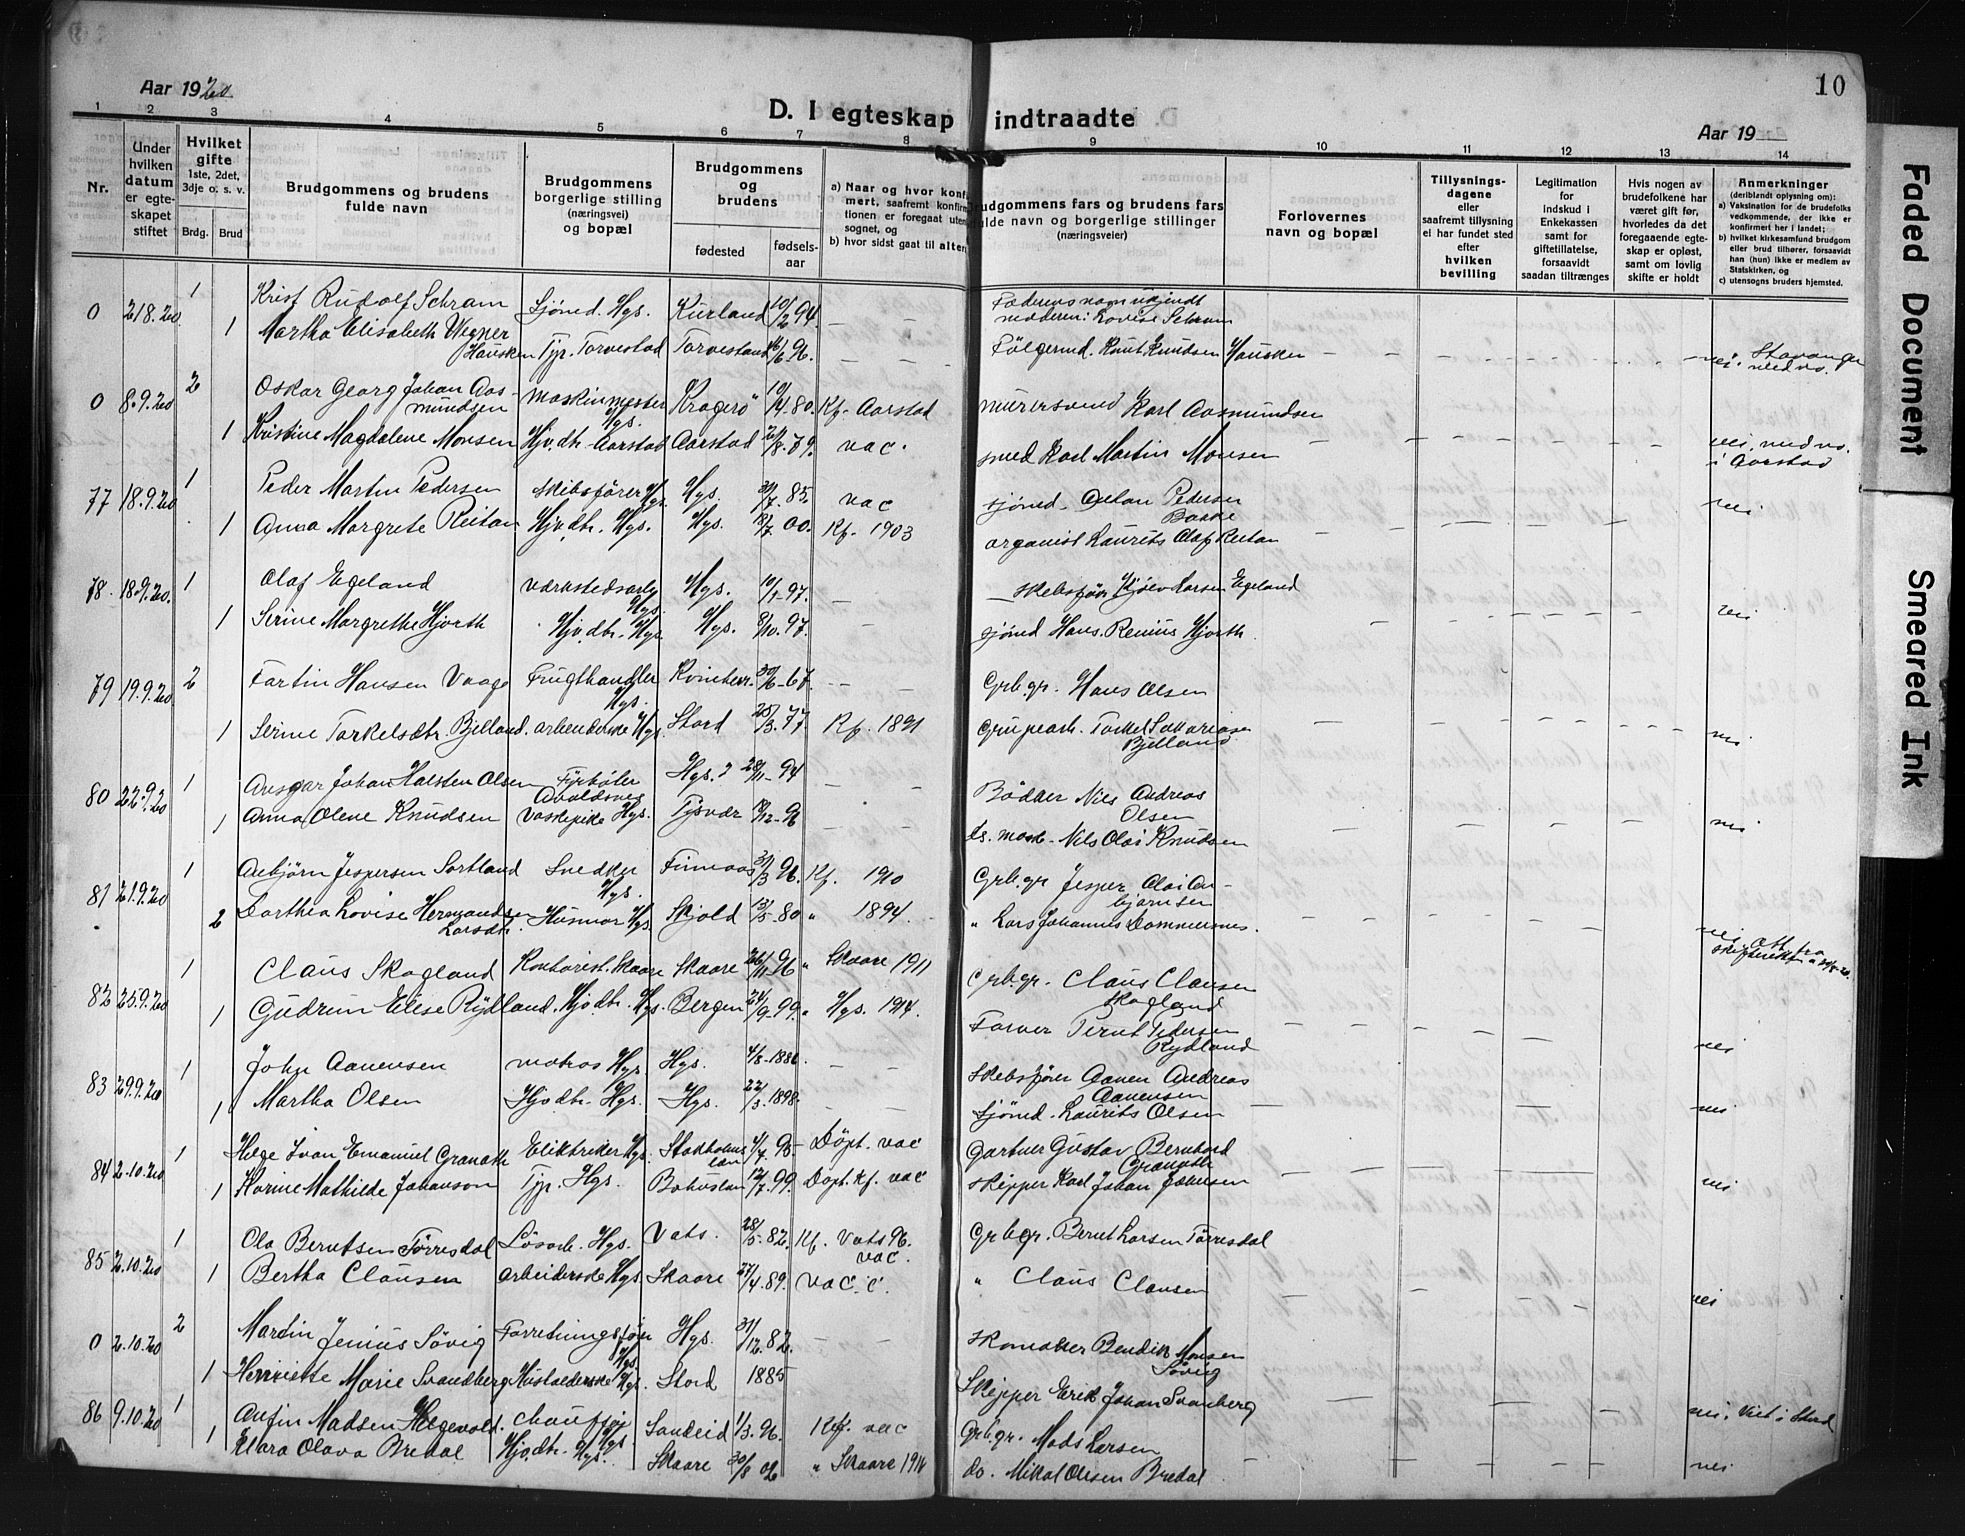 10
Aar 1920
D. I egteskap indtraadte
Aar 19
1 2 3 4 5 6 7 8 9 10 11 12 13 14
Nr.
Under hvilken datum er egteskapet stiftet
Hvilket gifte 1ste, 2det, 3dje o. s. v.
Brdg. Brud
Brudgommens og brudens fulde navn
Brudgommens borgerlige stilling (næringsvei) og bopæl
Brudgommens og brudens
fødested
fødsels-aar
a) Naar og hvor konf
mert, saafremt konfir
tionen er foregaat uten
sognet, og
b) hvor sidst gaat til alter
udgommens fars og brudens fars
fulde navn og borgerlige stillinger
(næringsveier)
Forlovernes navn og bopæl
Tillysnings-dagene eller saafremt tillysning ei har fundet sted efter hvilken bevilling
Legitimation for indskud i Enkekassen samt for giftetillatelse, forsaavidt saadan tiltrænges
Hvis nogen av brudefolkene har været gift før, hvorledes da det foregaaende egteskap er opløst, samt om lovlig skifte er holdt
Anmerkninger
(deriblandt oplysning om):
a) Vaksination for de brudefolks vedkommende, der ikke er konfirmert her i landet;
b) hvilket kirkesamfund brudgom eller brud tilhører, forsaavidt han (hun) ikke er medlem av Statskirken, og
c) utensogns bruders hjemsted.
0 21.8.20 1 Krist Rudolf Schram Sjømd. Hgs. Kurland 10/2 94. Faderens navn ukjendt
moderen: Lovise Schram
1 Martha Elisabeth Wegner
Hausken Tjp. Torvestad Torvestad 16/6 96. Følgemd. Knut Knudsen Hausken nei. Stavanger
0 8.9.20 2 Oskar Georg Johan Aas-
mundsen Maskinmester Hgs. Kragerö 10/4 80. Kf. Aarstad murersvend Karl Aasmundsen
1 Kristine Magdalene Monsen Hjv.dtr. Aarstad Aarstad 79. vac. smed Karl Martin Monsen nei,
i Aarstad
77 18.9.20 1 Peder Martin Pedersen Skibsfører Hgs. Hgs. 30/7. 85. vac sjömd. Pedersen
1 Anna Margrete Reitan Hjv.dtr. Hgs. Hgs. 00. Kf. 1903 organist Laurits Olaf Reitan nei
78 18.9.20. 1 Olaf Egeland værkstedsarb. Hgs. Hgs. 10/1 97. Skibsfører Larsen Egeland
1 Serine Margrethe Hjorth Hjv.dtr. Hgs. Hgs. 8/10. 97. sjömd Hans Renius Hjorth nei
79 19.9.20 2 Fartin Hansen Vaage Frugthandler Hgs. Kvinherr. 30/6 67. Grb.gr. Hans Olsen
1 Serine Torkelsdtr. Bjelland. arbeiderske Hgs. Stord 25/3. 77. Kf. 1891 Grubearb. Torkel Sakariasen
Bjelland nei
80 22.9.20 1 Ansgar Johan Halsten Olsen Fyrböter
Avaldsnes Hgs. ? 28/11 94 Bödker Nils Andreas
Olsen
1 Anna Olene Knudsen Vaskepike Hgs. Tysvær /12 96 ds. mask. Nils Olai Knudsen nei
81 21.9.20 1 Asbjørn Jespersen Sortland Snedker Hgs. Finnaas /3 96. Kf. 1910 Grb.gr Jesper Olai An-
bjørnsen
2 Dorthea Lovise Hermandsen
Larsdtr. Husmor Hgs. Skjold 13/5 80 " 1894. " Lars Johannes Dommersnes. nei, att. fra
skifteretten
82 25.9.20 1 Claus Skogland Kontorist. Skaare Skaare 26/11 96 " Skaare 1911 Grb.gr. Claus Clausen
Skogland
1 Gudrun Elise Rydland. Hjv.dtr. Hgs. Bergen 24/9 99. " Hgs. 1914. Farver Bernt Pedersen
Rydland nei
83 29.9.20 1 John Aanensen matros Hgs. Hgs. 4/8 1886. Skibsfører Aanen Andreas
Aanensen
1 Martha Olsen Hjv.dtr. Hgs. Hgs. 22/3. 1898. Sjömd. Laurits Olsen nei
84 2.10.20 1 Helge Ivan Emanuel Granath Elektriker Hgs. Stockholms
län 4/4. 95 Döpt. vac Gartner Gustav Bernhard
Granath
1 Karine Mathilde Johanson Tjp. Hgs. Bohuslän 12/7. 99. Döpt. kf. vac Skipper Karl Johan Johansen nei
85 2.10.20 1 Ola Berntsen Tørresdal Lösarb. Hgs. Vats. 28/5. 82. Kf. Vats 96.
vac. Grb.gr. Bernt Larsen Törresdal
1 Bertha Clausen arbeiderske Hgs. Skaare 27/4. 89. vac. c. " Claus Clausen nei
0 2.10.20 2 Martin Jenius Sövig Forretningsfører Hgs. Hgs. 31/12. 82. Skomaker Bendik Monsen
Sövig
1 Henriette Marie Svandberg Hgs. Stord 1885 Skipper Erik Johan Svanberg
nei, Viet i Stord
86 9.10.20 1 Anfin Madsen Helgevold. Chauffør Hgs. Sandeid 1/3. 96. Kf. vac Grb.gr. Mads Larsen
1 Klara Olava Bredal Hjv.dtr. Hgs. Skaare 30/8 02 " Skaare 1916 do. Mikal Olsen Bredal nei
Faded Document
Smeared Ink